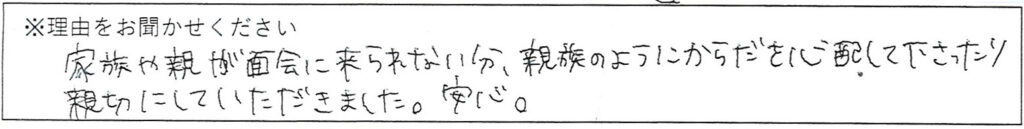 ※理由をお聞かせください
家族や親が面会に来られない分、親族のようにからだを心配して下さったり
親切にしていただきました。安心。